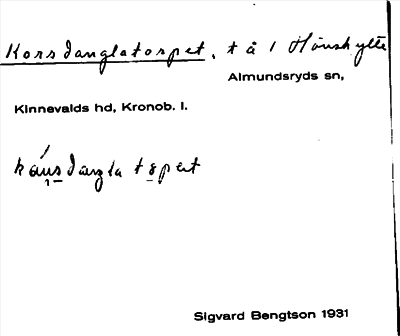 Korsdanglatorpet, t å 1 Hönshylte
Almundsryds sn,
Kinnevalds hd, Kronob. l.
Sigvard Bengtson 1931